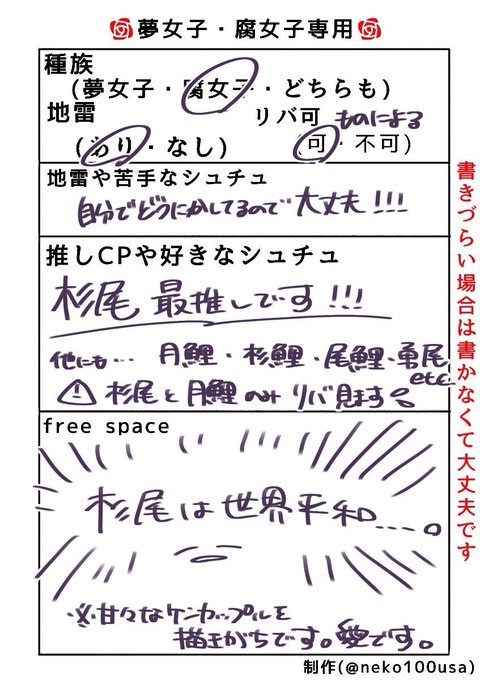 夢女子・腐女子専用
種族
(夢女子・腐女子・どちらも)
地雷
リバ可 ものによる
(あり・なし) (可・不可)
地雷や苦手なシュチュ
自分でどうにかしてるので 大丈夫!!!
推しCPや好きなシュチュ
杉尾 最推しです!!!
他にも… 月鯉・杉鯉・尾鯉・勇尾
etc
⚠ 杉尾と月鯉のみ リバ見ます
free space
杉尾は世界平和....。
※甘々なケンカップルを
描きがちです。愛です。
書きづらい場合は書かなくて大丈夫です
制作(@neko100usa)